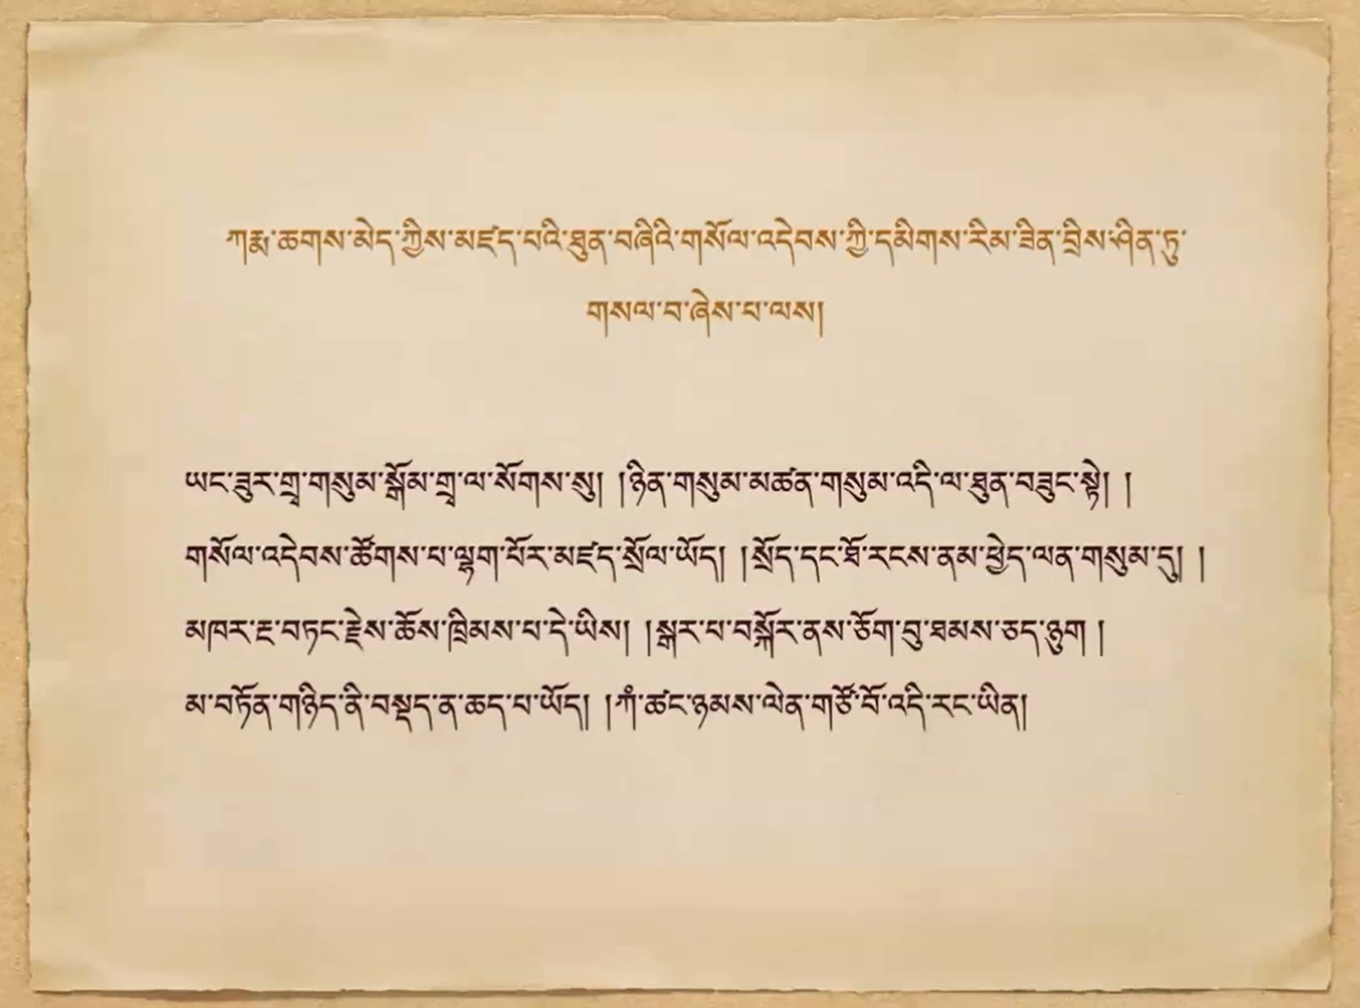 ཀརྨ་ཆགས་མེད་ཀྱིས་མཛད་པའི་ཐུན་བཞིའི་གསོལ་འདེབས་ཀྱི་དམིགས་རིམ་ཟིན་བྲིས་ཤིན་ཏུ་
གསལ་བ་ཞེས་པ་ལས།
ཡང་ཟུར་གྲྭ་གསུམ་སྒོམ་གྲྭ་ལ་སོགས་སུ། །ཉིན་གསུམ་མཚན་གསུམ་འདི་ལ་ཐུན་བཟུང་སྟེ། །
གསོལ་འདེབས་ཚོགས་པ་ལྷག་པོར་མཛད་སྲོལ་ཡོད། །སྲོད་དང་ཐོ་རངས་ནམ་ཕྱེད་ལན་གསུམ་དུ། །
མཁར་རྔ་བཏང་རྗེས་ཆོས་ཁྲིམས་པ་དེ་ཡིས། །སྒར་པ་བསྐོར་ནས་ཅོག་བུ་ཐམས་ཅད་ཉུག །
མ་བཏོན་གཉིད་ནི་བསྡད་ན་ཆད་པ་ཡོད། །ཀཾ་ཚང་ཉམས་ལེན་གཙོ་བོ་འདི་རང་ཡིན།